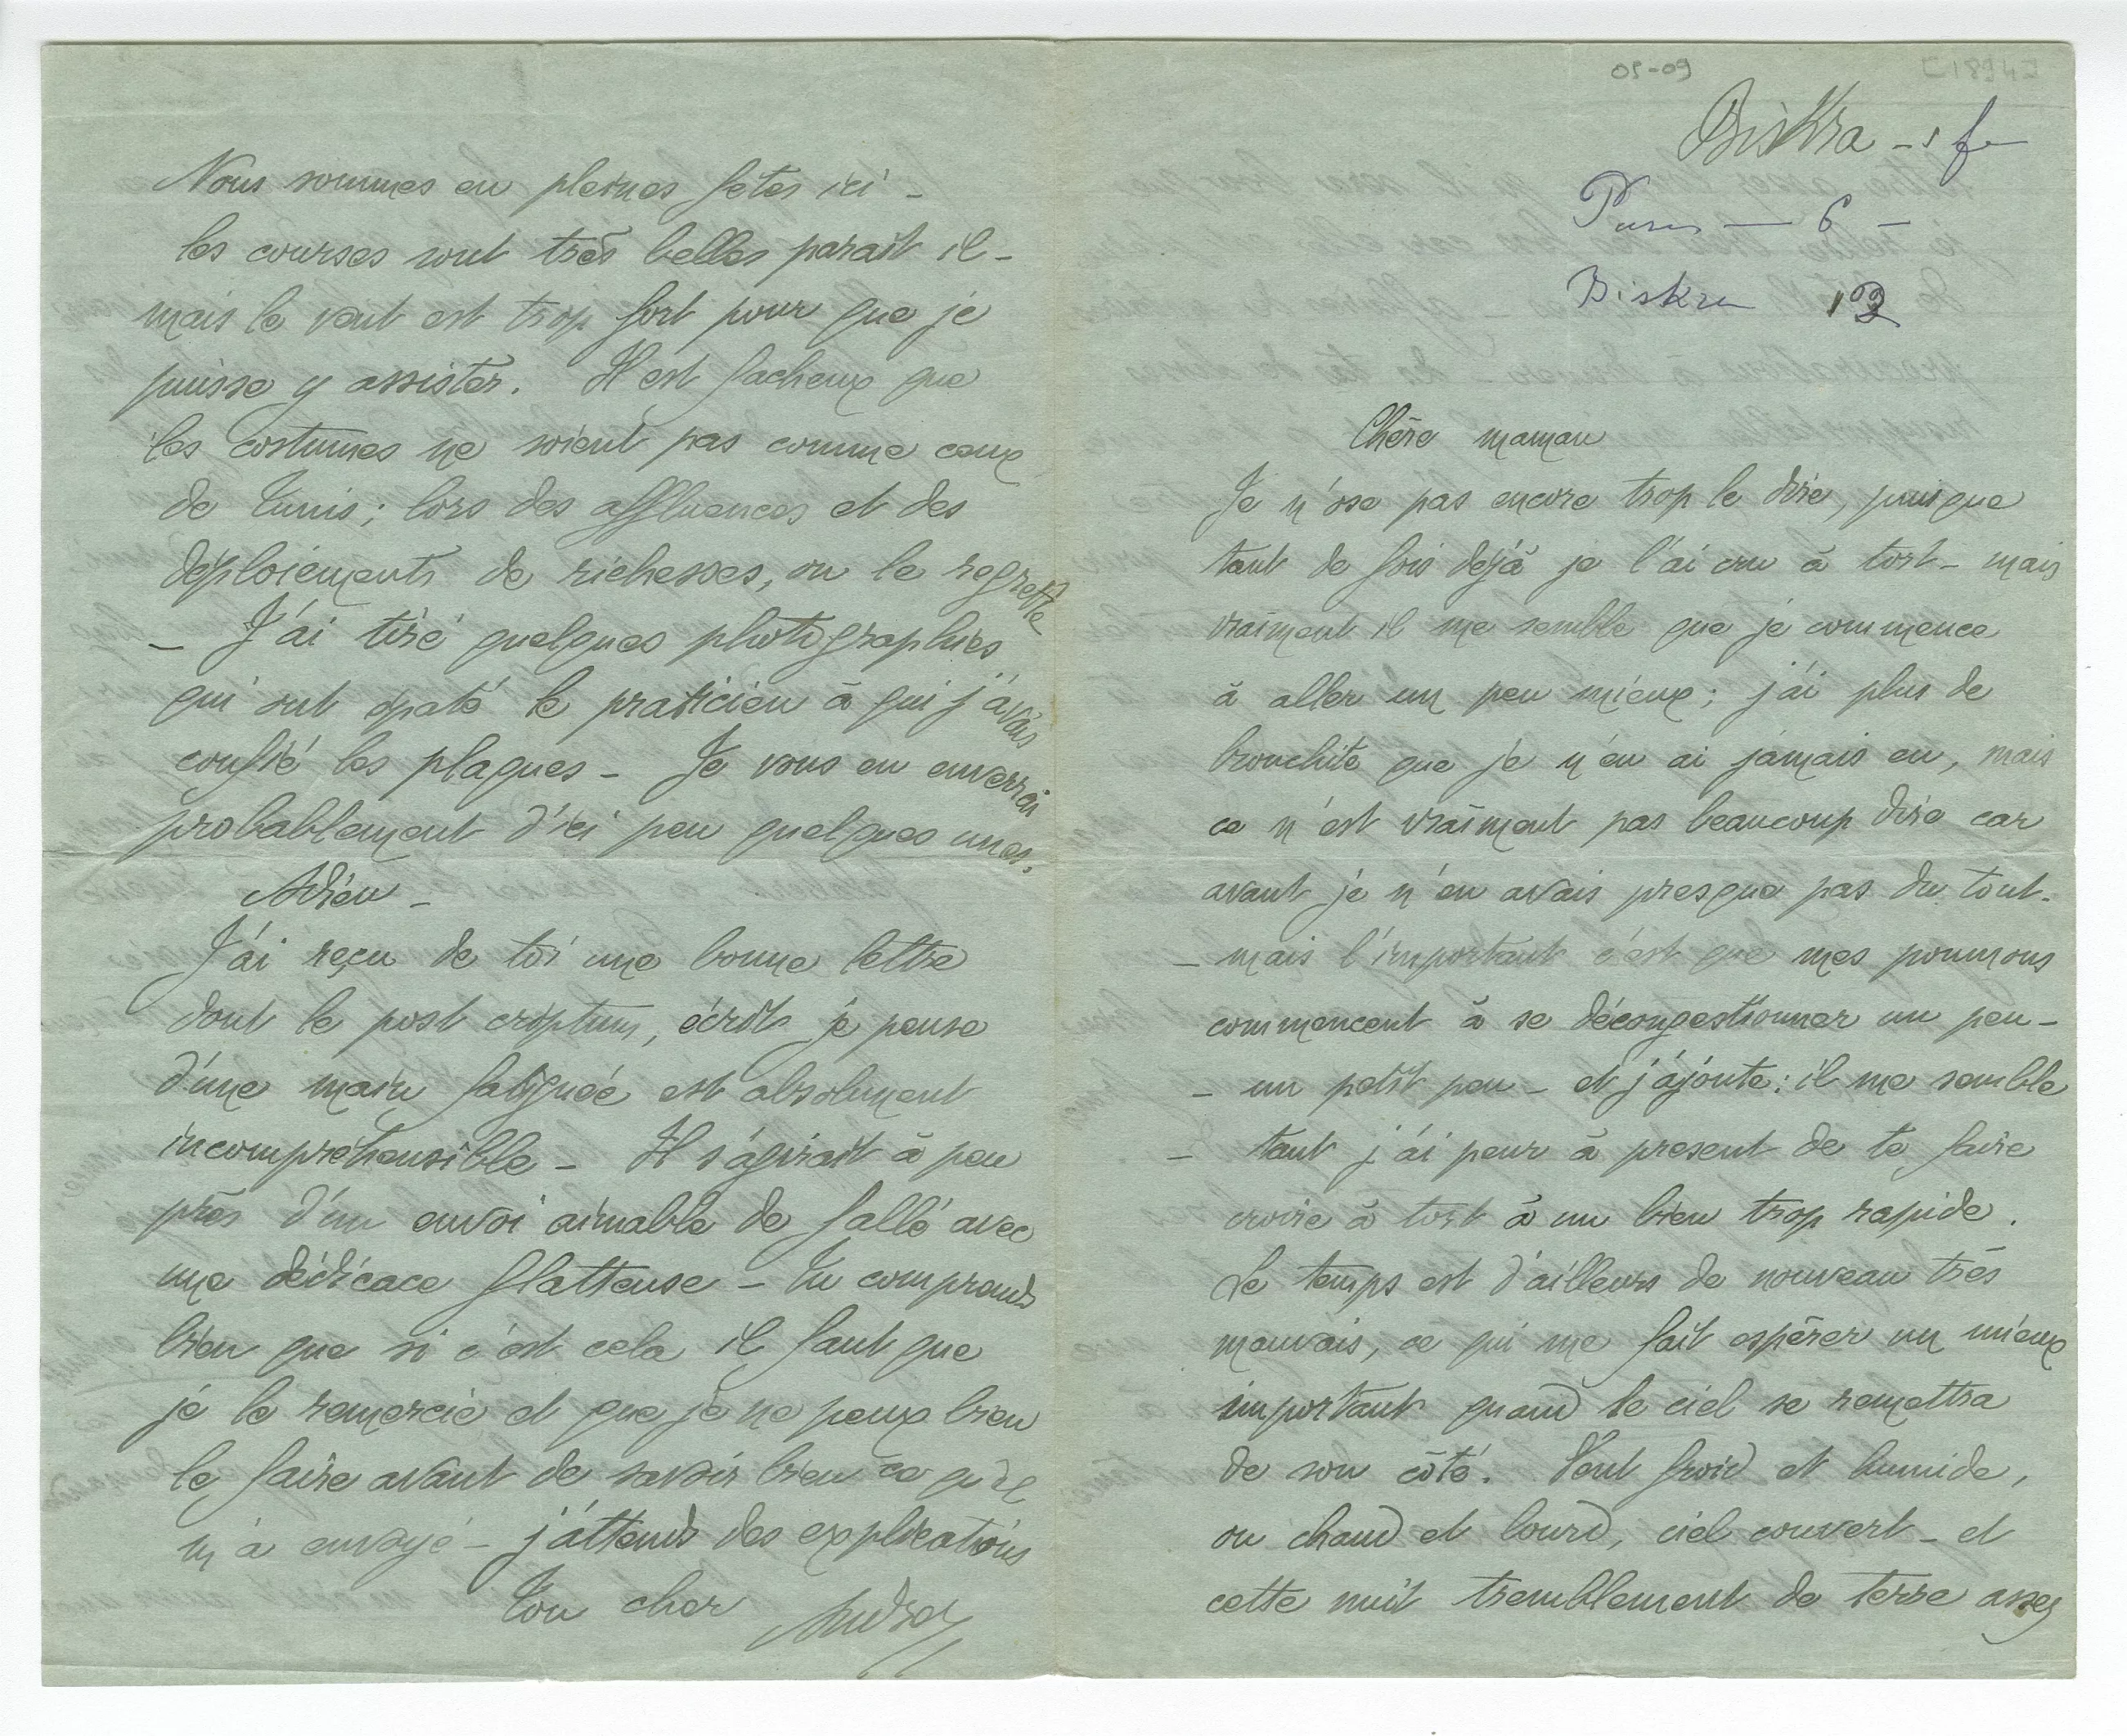 05-09
[1894]
Biskra - 1 f
Paris — 6 —
Biskra 12
Chère maman
Je n'ose pas encore trop le dire, puisque
tant de fois déjà je l'ai cru à tort - mais
vraiment il me semble que je commence
à aller un peu mieux ; j'ai plus de
bronchite que je n'en ai jamais eu, mais
ce n'est vraiment pas beaucoup dire car
avant je n'en avais presque pas du tout.
- mais l'important c'est que mes poumons
commencent à se décongestionner un peu -
- un petit peu - et j'ajoute : il me semble
- tant j'ai peur à present de te faire
croire à tort à un bien trop rapide.
Le temps est d'ailleurs de nouveau très
mauvais, ce qui me fait espérer un mieux
important quand le ciel se remettra
de son côté. Vent froid et humide,
ou chaud et lourd, ciel couvert - et
cette nuit tremblement de terre assez
Nous sommes en pleines fêtes ici -
les courses sont très belles parait il -
mais le vent est trop fort pour que je
puisse y assister. Il est facheux que
les costumes ne soient pas comme ceux
de Tunis ; lors des affluences et des
déploiements de richesses, on le regrette
- J'ai tiré quelques photographies
qui ont épaté le praticien à qui j'avais
confié les plaques - Je vous en enverrai
probablement d'ici peu quelques unes.
Adieu -
J'ai reçu de toi une bonne lettre
dont le post criptum, écrit je pense
d'une main fatiguée est absolument
incompréhensible - Il s'agirait à peu
près d'un envoi aimable de fallé avec
une dédicace flatteuse - Tu comprends
bien que si c'est cela il faut que
je le remercie et que je ne peux bien
le faire avant de savoir bien ce qu'il
m'a envoyé - j'attends des explications
Ton cher André